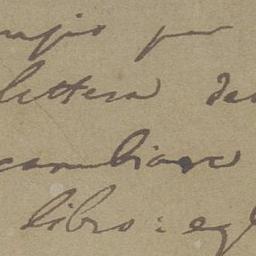 per
lettera da
cambiare
libro: eg